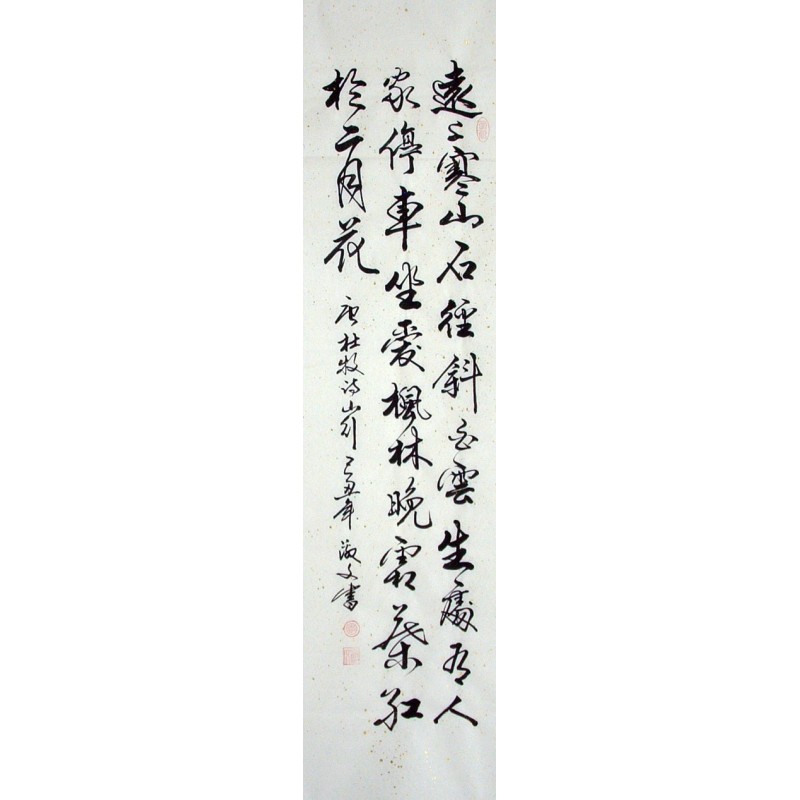 遠〻寒山石徑斜白雲生處有人
家停車坐愛楓林晚霜葉紅
於二月花
唐杜牧诗山行 己丑年 敬文書